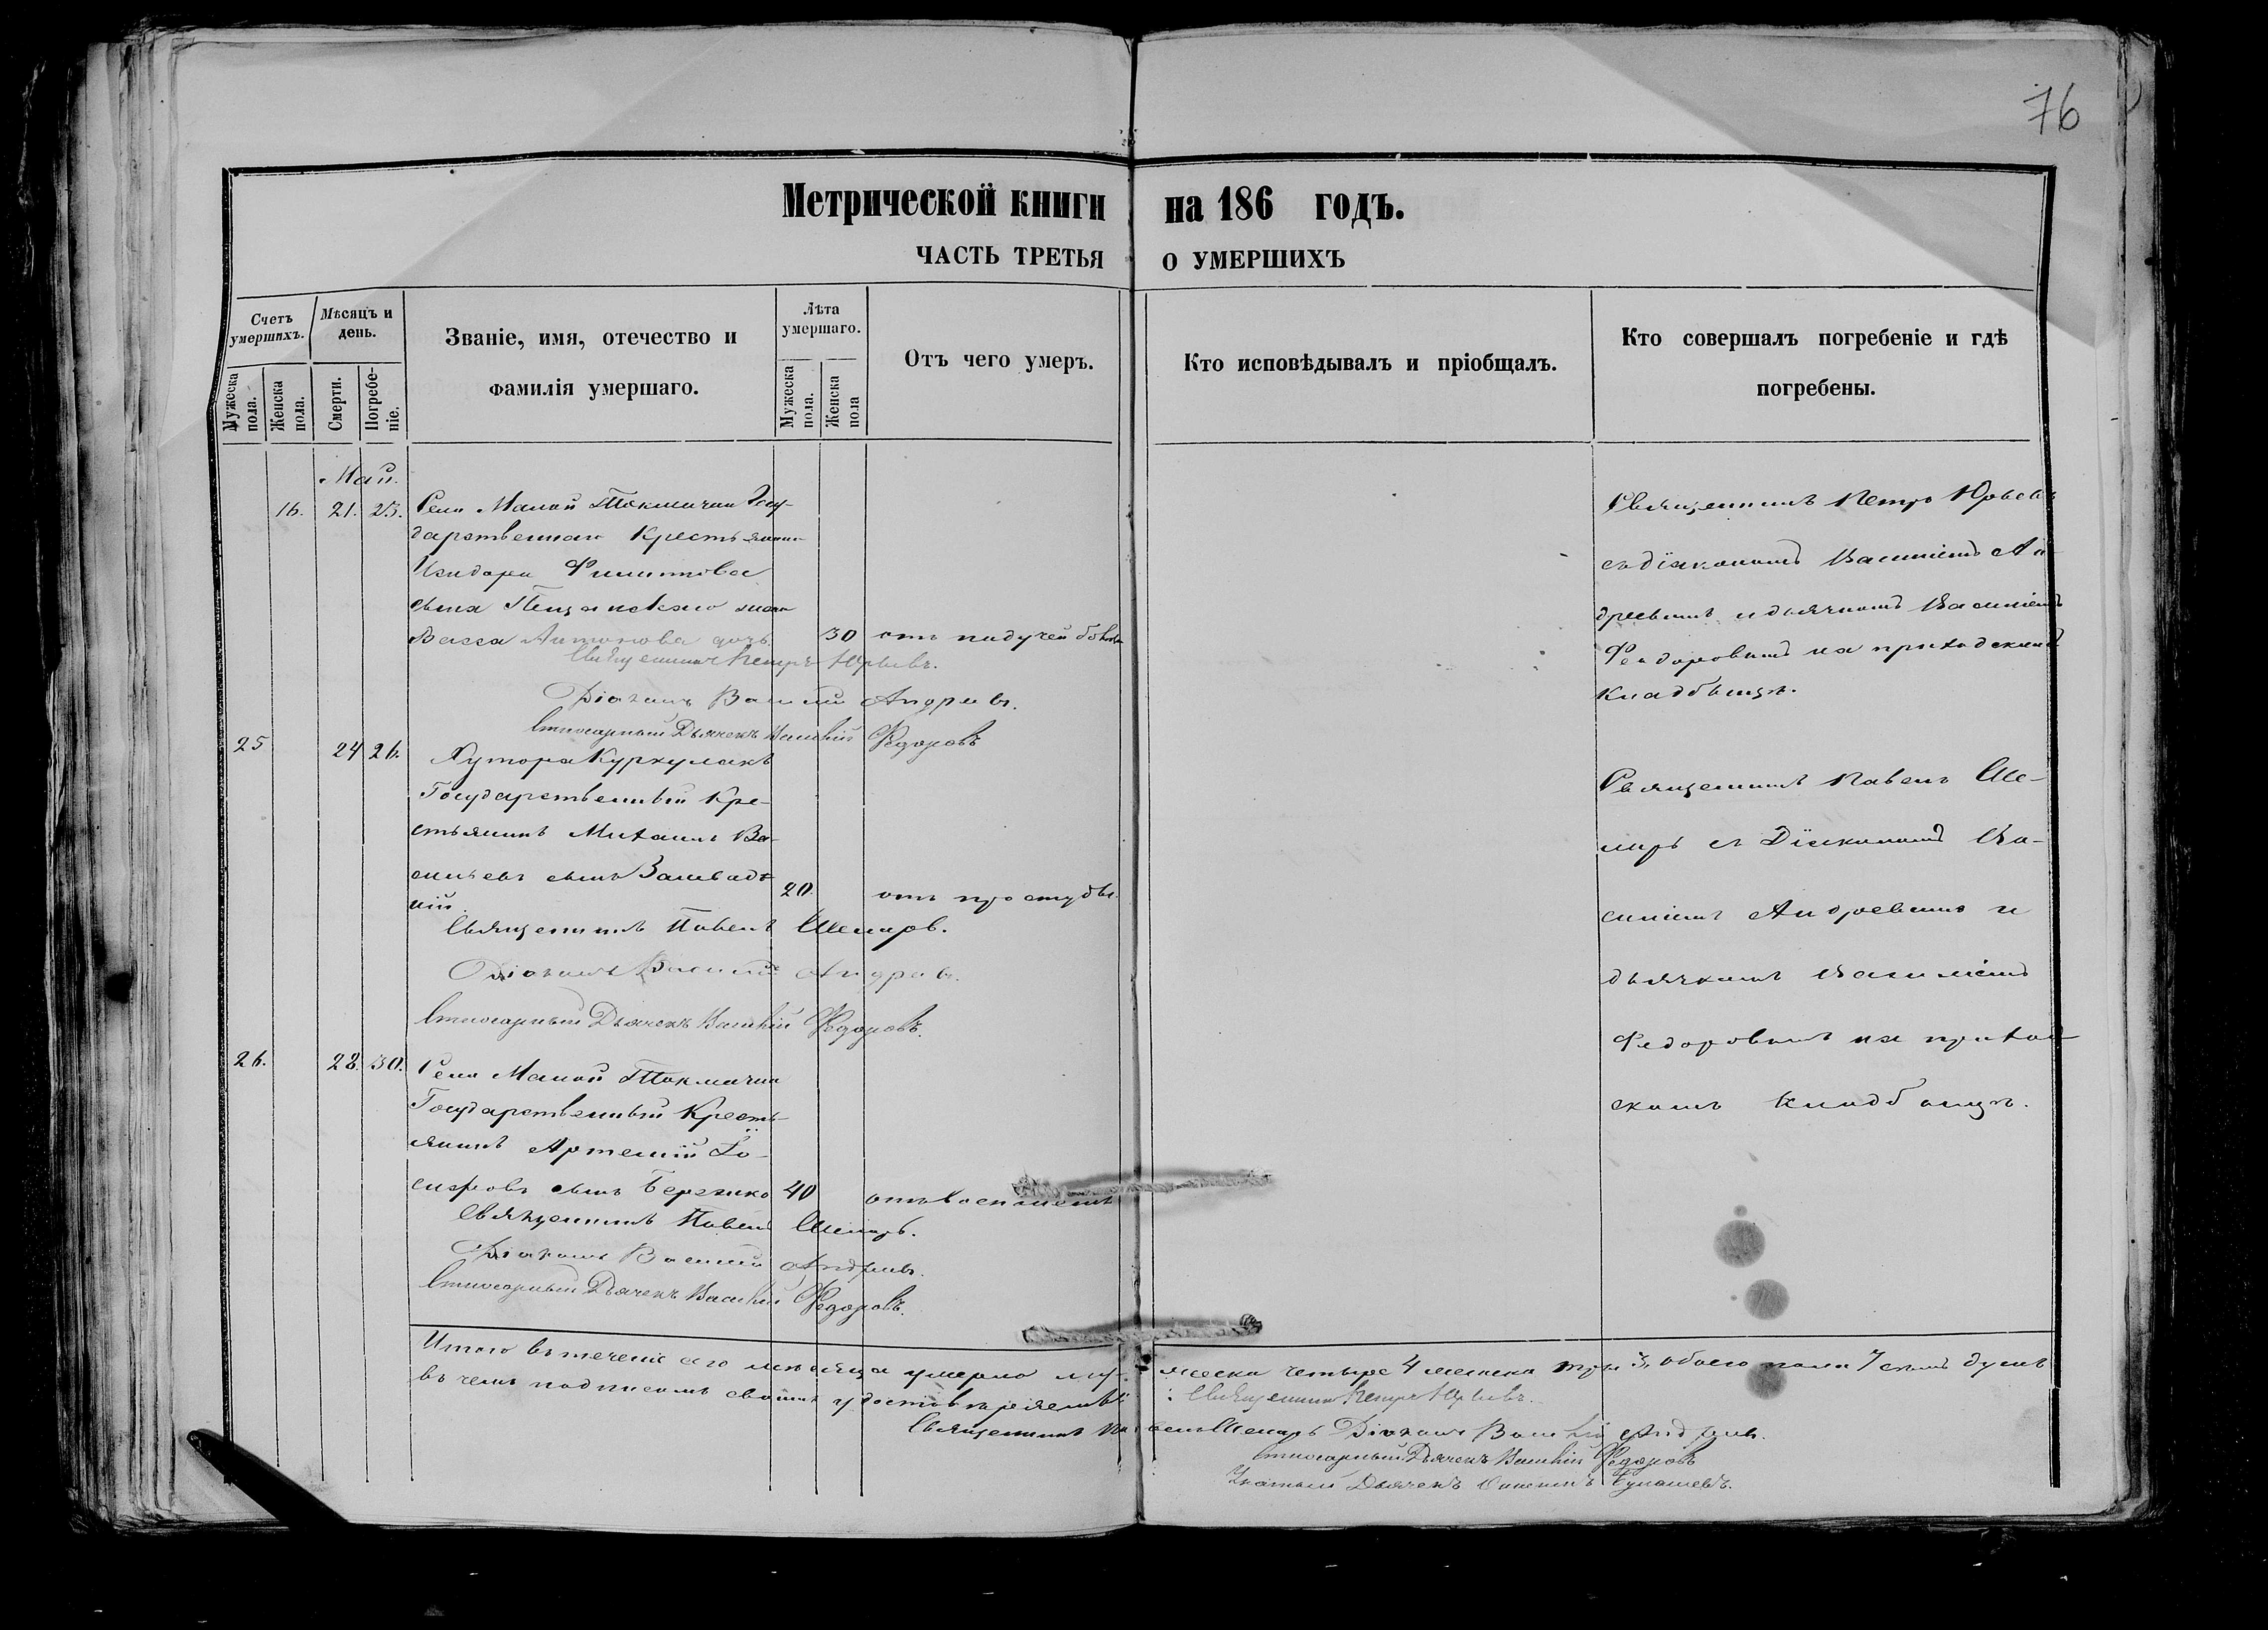 76
Метрической книги на 186 годъ.
ЧАСТЬ ТРЕТЬЯ О УМЕРШИХЪ
Счетъ умершихъ.
Мужеска пола.
Женска пола.
Мѣсяцъ и день.
Смерти.
Погребеніе.
Званіе, имя, отечество и фамилія умершаго.
Лѣта умершаго.
Мужеска пола.
Женска пола
Отъ чего умеръ.
Кто исповѣдывалъ и пріобщалъ.
Кто совершалъ погребеніе и гдѣ погребены.
Май.
16. 21. 23. Села Малой Токмачки Госу-
дарственнаго Крестьянина
Исидора Филиппова
сына жена
Васса Антонова дочь 30 отъ падучей болѣзни
Священникъ Петръ Юрьевъ.
Діаконъ Василій Андреевъ.
Дьячекъ Василій Федоровъ
Священникъ Петръ Юрьевъ
съ діакономъ Василіемъ Ан-
дреевымъ и дьячкомъ Василіемъ
Федоровымъ на приходскомъ
кладбищѣ.
25 24 26. Хутора Куркулакъ
Государственный Кре-
стьянинъ Михаилъ Ва-
сильевъ сынъ
20 отъ простуды.
Священникъ Павелъ
Діаконъ Василій Андреевъ.
Дьячекъ Василій Федоровъ.
Священникъ Павелъ Ше-
съ Діакономъ Ва-
силіемъ Андреевымъ и
дьячкомъ Василіемъ
Федоровымъ на приход-
скомъ кладбищѣ.
26. 28. 30. Села Малой Токмачки
Государственный Кресть-
янинъ Артемій Іо-
сифовъ сынъ Бережко 40 отъ воспаленія
Священникъ Павелъ
Діаконъ Василій Андреевъ.
Дьячекъ Василій Федоровъ.
Итого въ теченіе сего мѣсяца умерло му- жеска четыре 4 женска три 3, обоего пола 7 семь душъ
въ чемъ подписомъ своимъ удостовѣряемъ: Священникъ Петръ Юрьевъ.
Священникъ Павелъ Діаконъ Василій Андреевъ.
Дьячекъ Василій Федоровъ
Дьячекъ